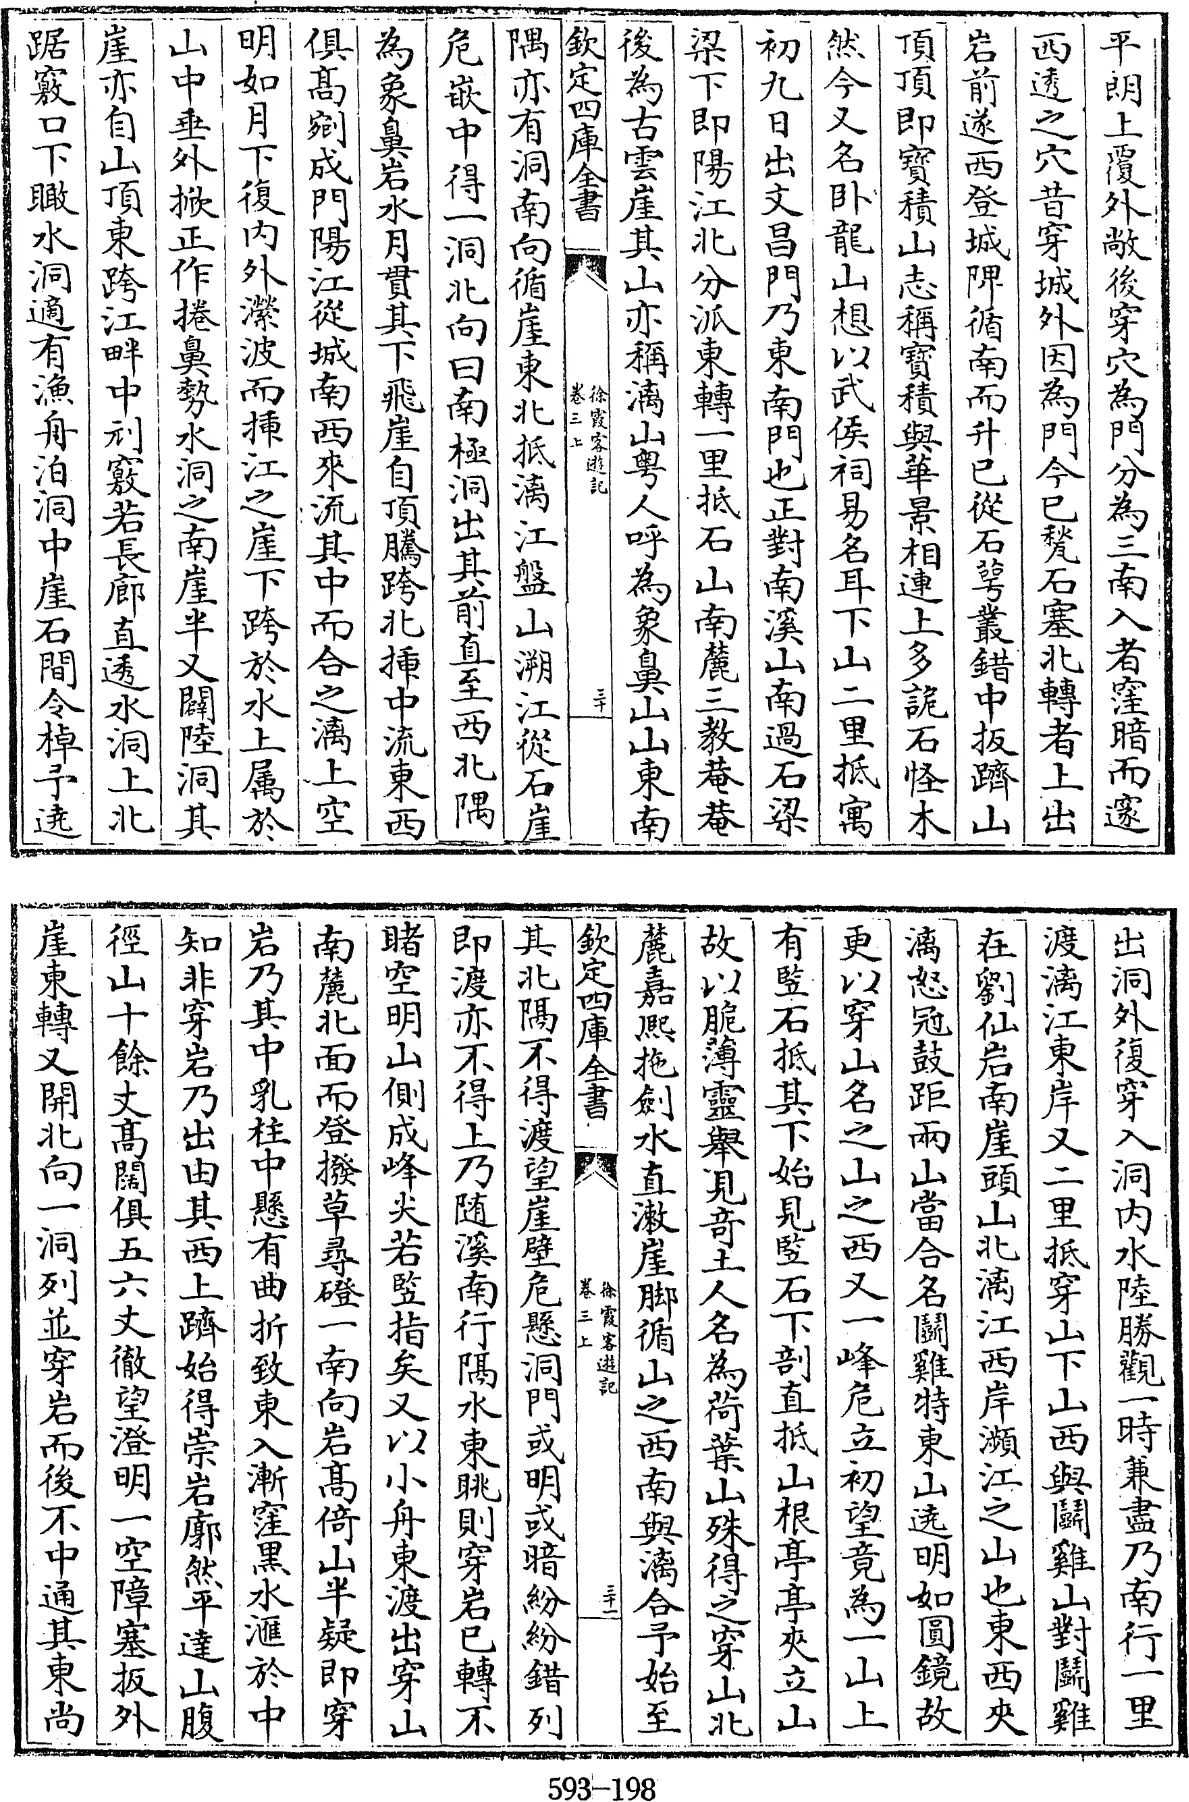 平朗上覆外敞後穿穴為門分為三南入者窪暗而邃
西透之穴昔穿城外因為門今已甃石塞北轉者上出
岩前遂西登城陴循南而升已從石萼叢錯中扳躋山
頂頂即寶積山志稱寶積與華景相連上多詭石怪木
然今又名卧龍山想以武侯祠易名耳下山二里抵寓
初九日出文昌門乃東南門也正對南溪山南過石梁
梁下即陽江北分派東轉一里抵石山南麓三教菴菴
後為古雲崖其山亦稱漓山粤人呼為象鼻山山東南
欽定四庫全書
徐霞客遊記
卷三上
三十
隅亦有洞南向循崖東北抵漓江盤山溯江從石崖
危嵌中得一洞北向曰南極洞出其前直至西北隅
為象鼻岩水月貫其下飛崖自頂騰跨北揷中流東西
俱髙剜成門陽江從城南西來流其中而合之漓上空
明如月下復内外瀠波而揷江之崖下跨於水上属於
山中垂外掀正作捲鼻勢水洞之南崖半又闢陸洞其
崖亦自山頂東跨江畔中刓竅若長廊直透水洞上北
踞竅口下瞰水洞適有漁舟泊洞中崖石間令棹予遶
出洞外復穿入洞内水陸勝觀一時兼盡乃南行一里
渡漓江東岸又二里抵穿山下山西與鬭雞山對鬭雞
在劉仙岩南崖頭山北漓江西岸瀕江之山也東西夾
漓怒冠鼓距兩山當合名鬭雞特東山透明如圓鏡故
更以穿山名之山之西又一峰危立初望竟為一山上
有竪石抵其下始見竪石下剖直抵山根亭亭夾立山
故以脆薄靈舉見奇土人名為荷葉山殊得之穿山北
麓嘉熙拖劍水直漱崖脚循山之西南與漓合予始至
欽定四庫全書
徐霞客遊記
卷三上
三十一
其北隅不得渡望崖壁危懸洞門或明或暗紛紛錯列
即渡亦不得上乃随溪南行隔水東眺則穿岩已轉不
睹空明山側成峰尖若竪指矣又以小舟東渡出穿山
南麓北面而登撥草尋磴一南向岩髙倚山半疑即穿
岩乃其中乳柱中懸有曲折致東入漸窪黒水滙於中
知非穿岩乃出由其西上躋始得崇岩廓然平達山腹
徑山十餘丈髙闊俱五六丈徹望澄明一空障塞扳外
崖東轉又開北向一洞列並穿岩而後不中通其東尚
593-198